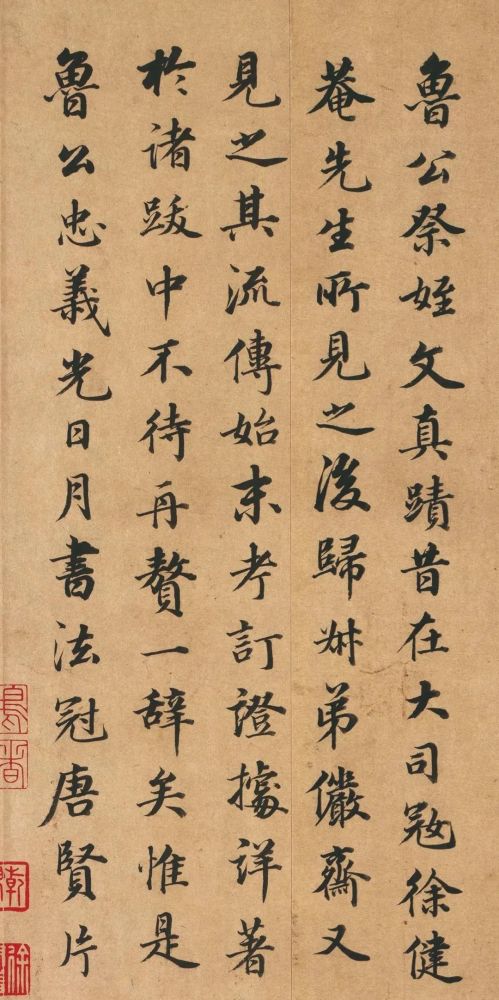 魯公祭姪文真蹟昔在大司寇徐健
菴先生所見之後歸姊弟儼齋又
見之其流傳始末考訂證據詳著
於諸跋中不待再贅一辭矣惟是
魯公忠義光日月書法冠唐賢片